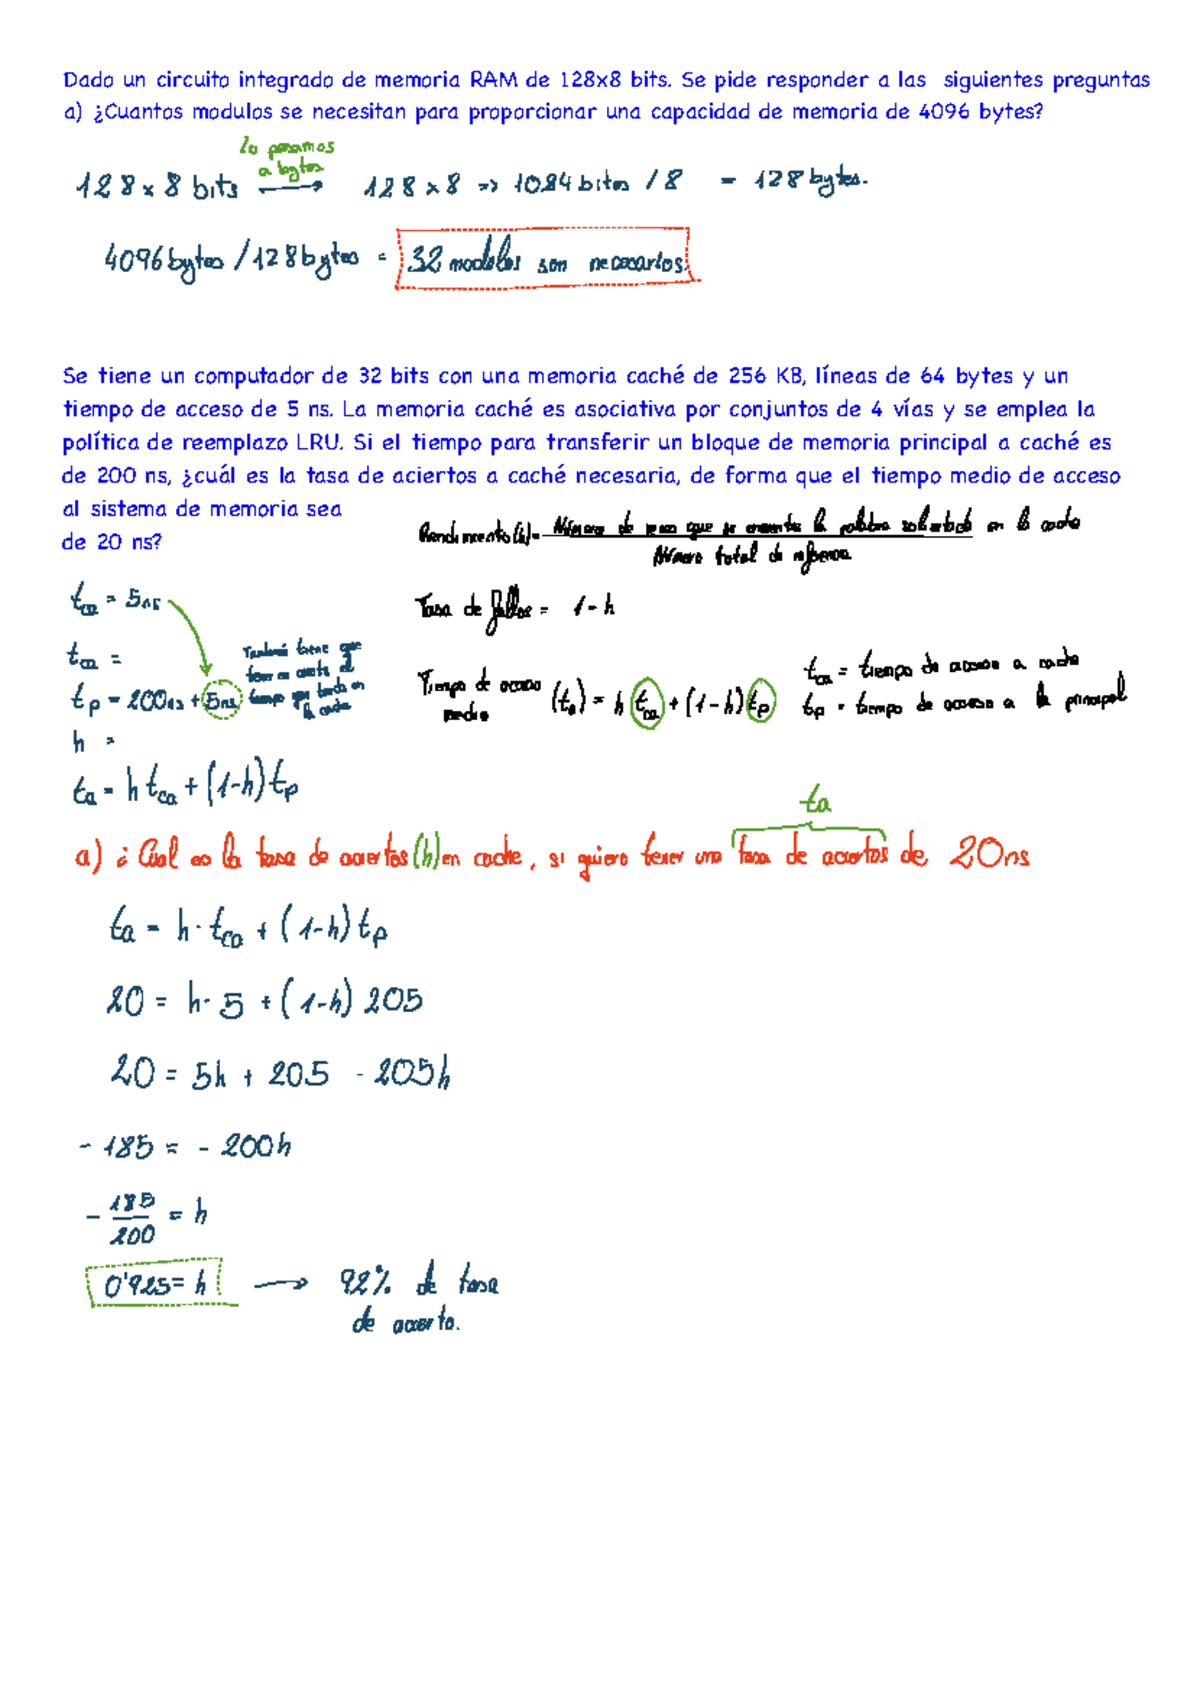 Dado un circuito integrado de memoria RAM de 128x8 bits. Se pide responder a las siguientes preguntas
a) ¿Cuantos modulos se necesitan para proporcionar una capacidad de memoria de 4096 bytes?
lo pasamos
a bytes
128 x 8 bits → 128 x 8 => 1024 bites / 8 = 128 bytes.
4096 bytes / 128 bytes = 32 modulos son necesarios.
Se tiene un computador de 32 bits con una memoria caché de 256 KB, líneas de 64 bytes y un
tiempo de acceso de 5 ns. La memoria caché es asociativa por conjuntos de 4 vías y se emplea la
política de reemplazo LRU. Si el tiempo para transferir un bloque de memoria principal a caché es
de 200 ns, ¿cuál es la tasa de aciertos a caché necesaria, de forma que el tiempo medio de acceso
al sistema de memoria sea
de 20 ns?
Rendimiento(h)= Número de veces que se encuentra la palabra solicitada en la cache
Número total de referencias
tca = 5ns
Tasa de fallos = 1-h
tca =
También tiene que
tener en cuenta el
tiempo que tarda en
la cache
tp = 200ns + 5ns
Tiempo de acceso
medio
(ta) = h tca + (1-h) tp
tca = tiempo de acceso a cache
tp = tiempo de acceso a la principal
h =
ta = h tca + (1-h) tp
ta
a) ¿Cual es la tasa de aciertos (h) en cache, si quiero tener una tasa de aciertos de 20ns
ta = h · tca + (1-h) tp
20 = h· 5 + (1-h) 205
20 = 5h + 205 - 205h
- 185 = - 200h
- 185/200 = h
0'925 = h → 92% de tasa
de acierto.